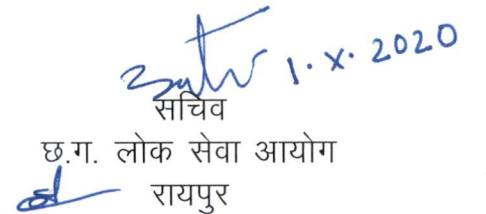 1.X.2020
सचिव
छ.ग. लोक सेवा आयोग
रायपुर